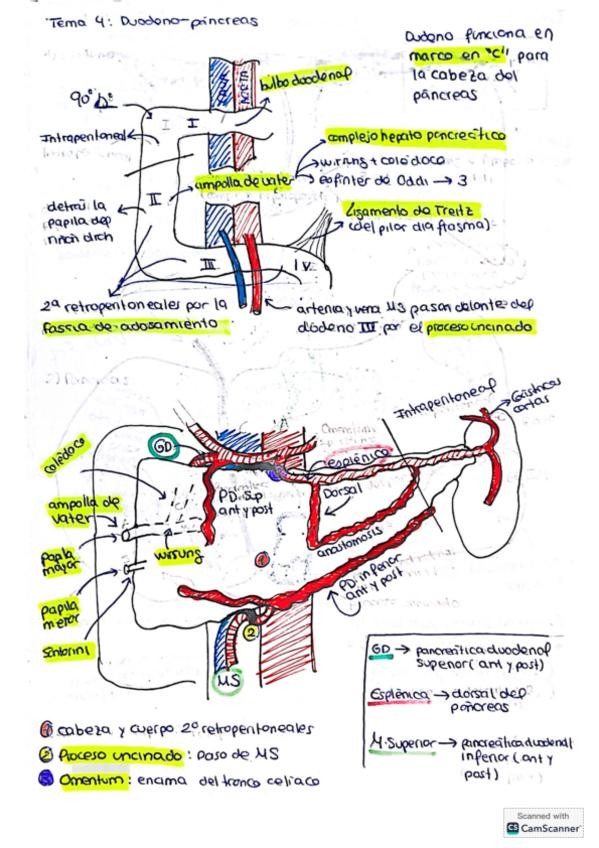 Tema 4: Duodeno-páncreas
Duodeno funciona en
marco en "C", para
la cabeza del
páncreas
CAVA
AORTA
bulbo duodenal
90º
I
I
Intraperitoneal
complejo hepato pancreático
→ wirsung + colédoco
ampolla de vater
→ esfinter de Oddi → 3
II
detrás: la
papila del
riñon drch
Ligamento de Treitz
(del pilar diafragma)
III
IV
2º retroperitoneales por la
fascia de adosamiento
arteria y vena MS pasan delante del
duodeno III por el proceso uncinado
Intraperitoneal
Gástricas
cortas
GD
colédoco
esplénica
PD. Sup
ant y post
Dorsal
ampolla de
vater
wirsung
anastomosis
papila
mayor
1
PD. inferior
ant y post
papila
menor
2
Santorini
MS
GD → pancreática duodenal
superior (ant y post)
Esplénica → dorsal del
páncreas
M. Superior → pancreática duodenal
inferior (ant y
post)
1 cabeza y cuerpo 2º retroperitoneales
2 Proceso uncinado: paso de MS
3 Omentum: encima del tronco celíaco
Scanned with
CS CamScanner